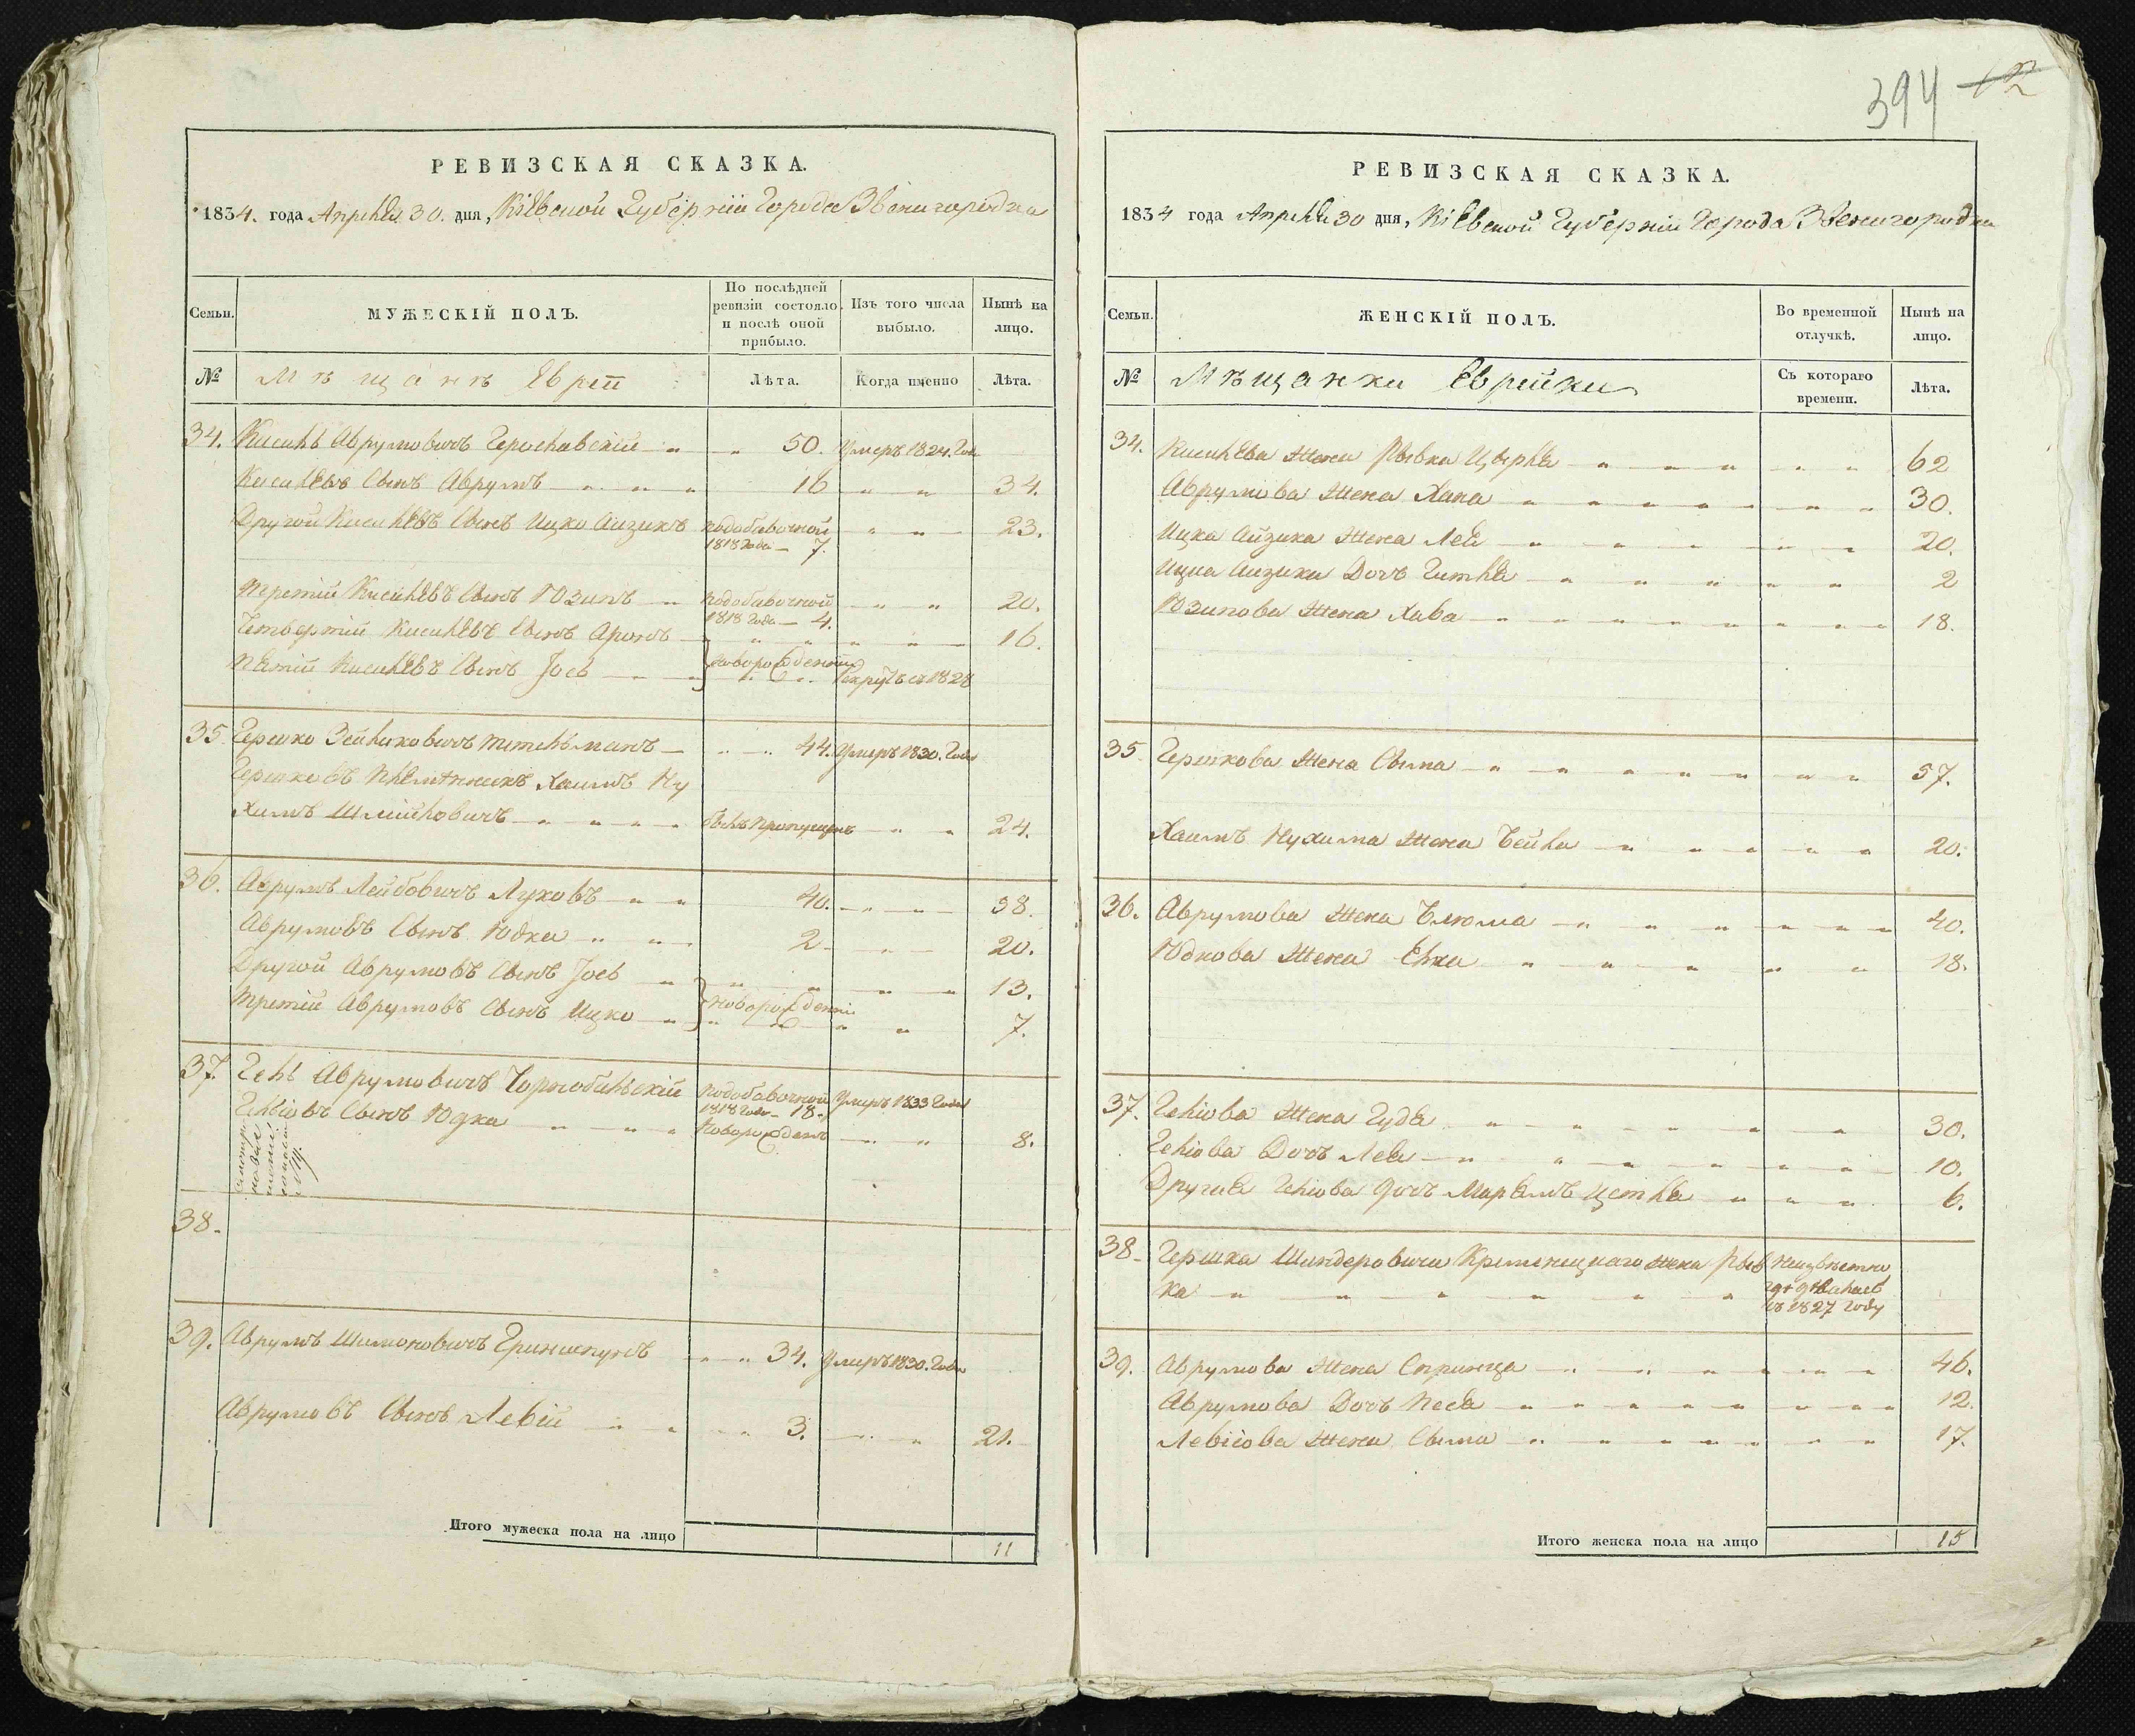 РЕВИЗСКАЯ СКАЗКА.
1834. года Апреля 30. дня, Кіевской Губерніи Города Звенигородка
Семьи.
МУЖЕСКІЙ ПОЛЪ.
По послѣдней ревизіи состояло и послѣ оной прибыло.
Изъ того числа выбыло.
Нынѣ на лицо.
№
Мѣщанѣ Евреи
Лѣта.
Когда именно
Лѣта.
34. Кисиль Аврумовичъ 50. Умеръ 1824. Года
Кисилевъ Сынъ Аврумъ 16 34.
Другой Кисилевъ Сынъ Ицко Айзикъ 23.
подобавочной
1818 Года 7.
Третій Кисилевъ Сынъ Юзипъ подобавочной 20.
1818 Года 4.
Четвертій Кисилевъ Сынъ Аронъ 16.
Пятій Кисилевъ Сынъ Іосъ новорожденніи 1828
35. Гершко Зейликовичъ Тительманъ 44. Умеръ 1830. Года
Гершковъ Племѣнникъ Хаимъ Ну
химъ Шмуйловичъ былъ пропущенъ 24.
36. Аврумъ Лейбовичъ Луковъ 40. 58.
Аврумовъ Сынъ Юдка 2 20.
Другой Аврумовъ Сынъ Іосъ 13.
новорожденніи
Третій Аврумовъ Сынъ Ицко 7.
37. Гель Аврумовичъ Чорнобильскій подобавочной Умеръ 1833 Года
1818 Года 18.
Геліовъ Сынъ Юдка Новорожденъ 8.
38.
39. Аврумъ Шимоновичъ 34. Умеръ 1830. Года
Аврумовъ Сынъ Левій 3. 21.
Итого мужеска пола на лицо
11
394 12
РЕВИЗСКАЯ СКАЗКА.
1834 года Апреля 30 дня, Кіевской Губерніи Города Звенигородки
Семьи.
ЖЕНСКІЙ ПОЛЪ.
Во временной отлучкѣ.
Нынѣ на лицо.
№
Мѣщанки Еврейки
Съ котораго времени.
Лѣта.
34. Кисилева Жена Рывка Цырля 62
Аврумова Жена Хана 30.
Ицка Айзика Жена Лея 20.
Ицка Айзика Дочъ Гитля 2
Юзипова Жена Хава 18.
35. Гершкова Жена Сыма 57.
Хаимъ Нухима Жена Бейла 20.
36. Аврумова Жена Блюма 40.
Юдкова Жена Елка 18.
37. Геліова Жена Гудя 30.
Геліова Дочъ Лея 10.
Другая Геліова Дочъ Марямъ Цетля 6.
38. Гершка Шандеровича Кременецкаго жена Рыв неизвѣстно
ка где дѣвалась
въ 1827 году
39. Аврумова Жена Спринца 46.
Аврумова Дочъ Песя 12.
Левіова Жена Сыма 17.
Итого женска пола на лицо
15